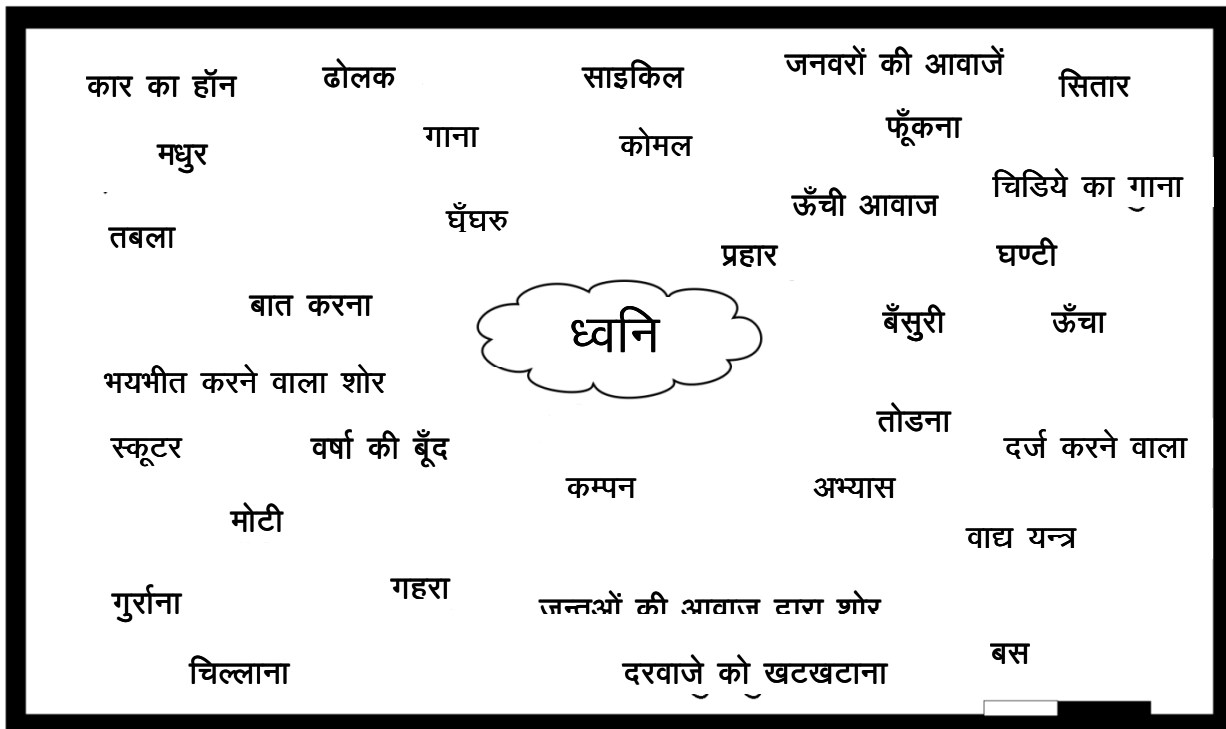 कार का हॉन
ढोलक
साइकिल
जनवरों की आवाजें
सितार
मधुर
गाना
कोमल
फूँकना
चिडिये का गाना
तबला
घँघरु
ऊँची आवाज
प्रहार
घण्टी
बात करना
ध्वनि
बँसुरी
ऊँचा
भयभीत करने वाला शोर
तोडना
स्कूटर
वर्षा की बूँद
दर्ज करने वाला
कम्पन
अभ्यास
मोटी
वाद्य यन्त्र
गुर्राना
गहरा
जन्तओं की आवाज द्वारा शोर
चिल्लाना
दरवाजे को खटखटाना
बस